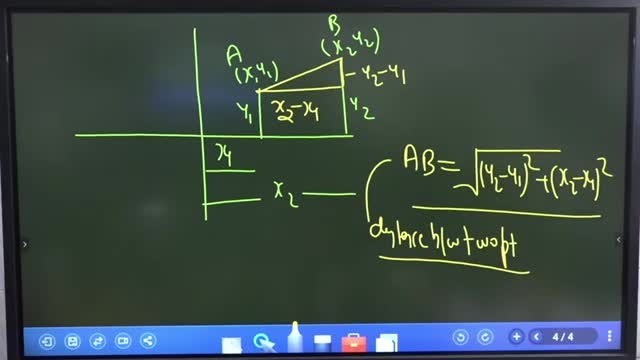 B
(x₂ y₂)
A
(x, y₁)
y₂-y₁
y₁
x₂-x₁
y₂
x₁
x₂
AB= √(y₂-y₁)²+(x₂-x₁)²
b/w two pt
4/4